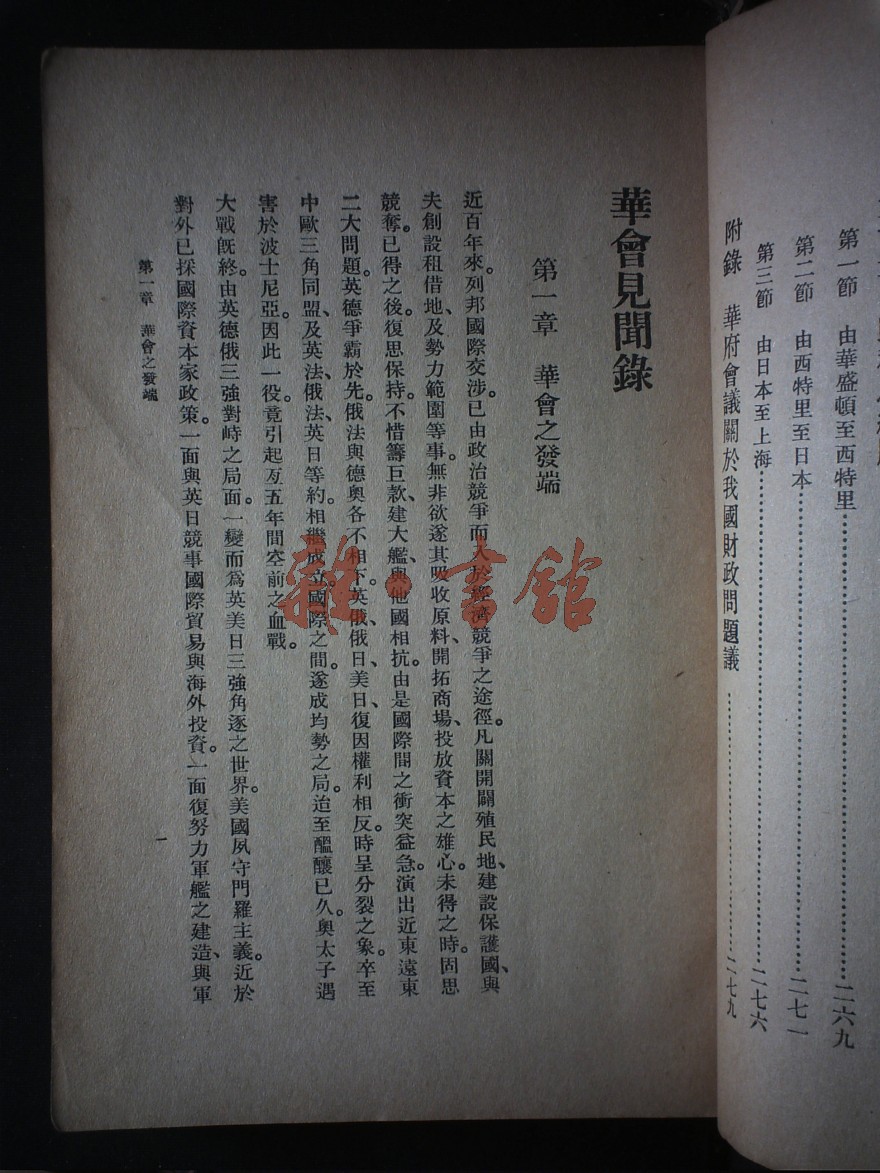 第一節　由華盛頓至西特里……………………二六九
第二節　由西特里至日本……………………二七一
第三節　由日本至上海……………………二七六
附錄　華府會議關於我國財政問題議……………………二七九
華會見聞錄
第一章　華會之發端
近百年來。列邦國際交涉。已由政治競爭而入於經濟競爭之途徑。凡關開闢殖民地、建設保護國、與
夫創設租借地、及勢力範圍等事。無非欲遂其吸收原料、開拓商場、投放資本之雄心。未得之時。固思
競奪。已得之後。復思保持。不惜籌巨款、建大艦、與他國相抗。由是國際間之衝突益急。演出近東遠東
二大問題。英德爭霸於先。俄法與德奧各不相下。英俄、俄日、美日、復因權利相反。時呈分裂之象。卒至
中歐三角同盟、及英法、俄法、英日等約。相繼成立。國際之間。遂成均勢之局。迨至醞釀已久。奧太子遇
害於波士尼亞。因此一役。竟引起亙五年間空前之血戰。
大戰旣終。由英德俄三強對峙之局面。一變而爲英美日三強角逐之世界。美國夙守門羅主義。近於
對外已採國際資本家政策。一面與英日競事國際貿易與海外投資。一面復努力軍艦之建造、與軍
第一章　華會之發端
一
雜·書館